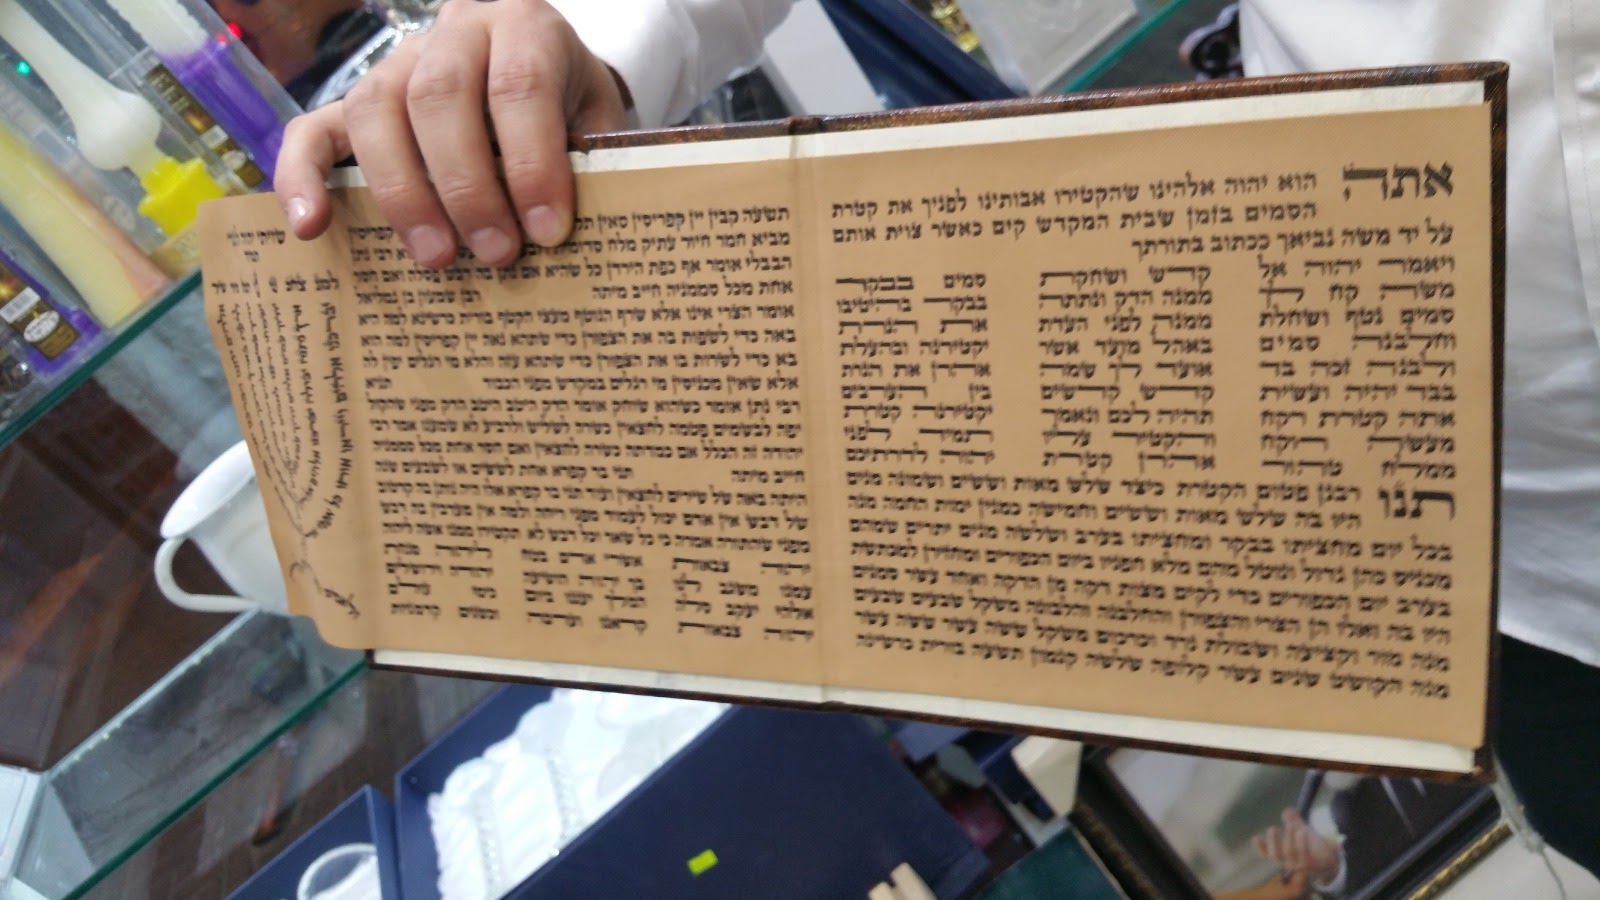 אתה הוא יהוה אלהינו שהקטירו אבותינו לפניך את קטרת
הסמים בזמן שבית המקדש קים כאשר צוית אותם
על יד משה נביאך ככתוב בתורתך
ויאמר יהוה אל קדש ושחקת סמים בבקר
משה קח לך ממנה הדק ונתתה בבקר בהיטיבו
סמים נטף ושחלת ממנה לפני העדת את הנרת
וחלבנה סמים באהל מועד אשר יקטירנה ובהעלת
ולבנה זכה בד אועד לך שמה אהרן את הנרת
בבד יהיה ועשית קדש קדשים בין הערבים
אתה קטרת רקח תהיה לכם ונאמר יקטירנה קטרת
מעשה רוקח והקטיר עליו תמיד לפני
ממלח טהור אהרן קטרת יהוה לדרתיכם
תנו רבנן פטום הקטרת כיצד שלש מאות וששים ושמונה מנים
היו בה שלש מאות וששים וחמישה כמנין ימות החמה מנה
בכל יום מחציתו בבקר ומחציתו בערב ושלשה מנים יתרים שמהם
מכניס כהן גדול ונוטל מהם מלא חפניו ביום הכפורים ומחזירן למכתשת
בערב יום הכפורים כדי לקיים מצות דקה מן הדקה ואחד עשר סמנים
היו בה ואלו הן הצרי והצפורן והחלבנה והלבונה משקל שבעים שבעים
מנה מור וקציעה ושבולת נרד וכרכום משקל ששה עשר ששה עשר
מנה הקושט שנים עשר קלופה שלשה קנמון תשעה בורית כרשינה
תשעה קבין יין קפריסין סאין
קפריסין
מביא חמר חיור עתיק מלח סדומית רבי נתן
הבבלי אומר אף כפת הירדן כל שהיא אם נתן בה דבש פסלה ואם חסר
אחת מכל סממניה חייב מיתה רבן שמעון בן גמליאל
אומר הצרי אינו אלא שרף הנוטף מעצי הקטף בורית כרשינא למה היא
באה כדי לשפות בה את הצפורן כדי שתהא נאה יין קפריסין למה הוא
בא כדי לשרות בו את הצפורן כדי שתהא עזה והלא מי רגלים יפין לה
אלא שאין מכניסין מי רגלים במקדש מפני הכבוד תניא
רבי נתן אומר כשהוא שוחק אומר הדק היטב היטב הדק מפני שהקול
יפה לבשמים פטמה לחצאין כשרה לשליש ולרביע לא שמענו אמר רבי
יהודה זה הכלל אם כמדתה כשרה לחצאין ואם חסר אחת מכל סממניה
חייב מיתה תני בר קפרא אחת לששים או לשבעים שנה
היתה באה של שירים לחצאין ועוד תני בר קפרא אלו היה נותן בה קרטוב
של דבש אין אדם יכול לעמוד מפני ריחה ולמה אין מערבין בה דבש
מפני שהתורה אמרה כי כל שאר וכל דבש לא תקטירו ממנו אשה ליהוה
יהוה צבאות אשרי אדם בטח ליהוה מנחת
עמנו משגב לנו בך יהוה הושיעה יהודה וירושלים
אלהי יעקב סלה המלך יעננו ביום כימי עולם
יהוה צבאות קראנו וערבה וכשנים קדמניות